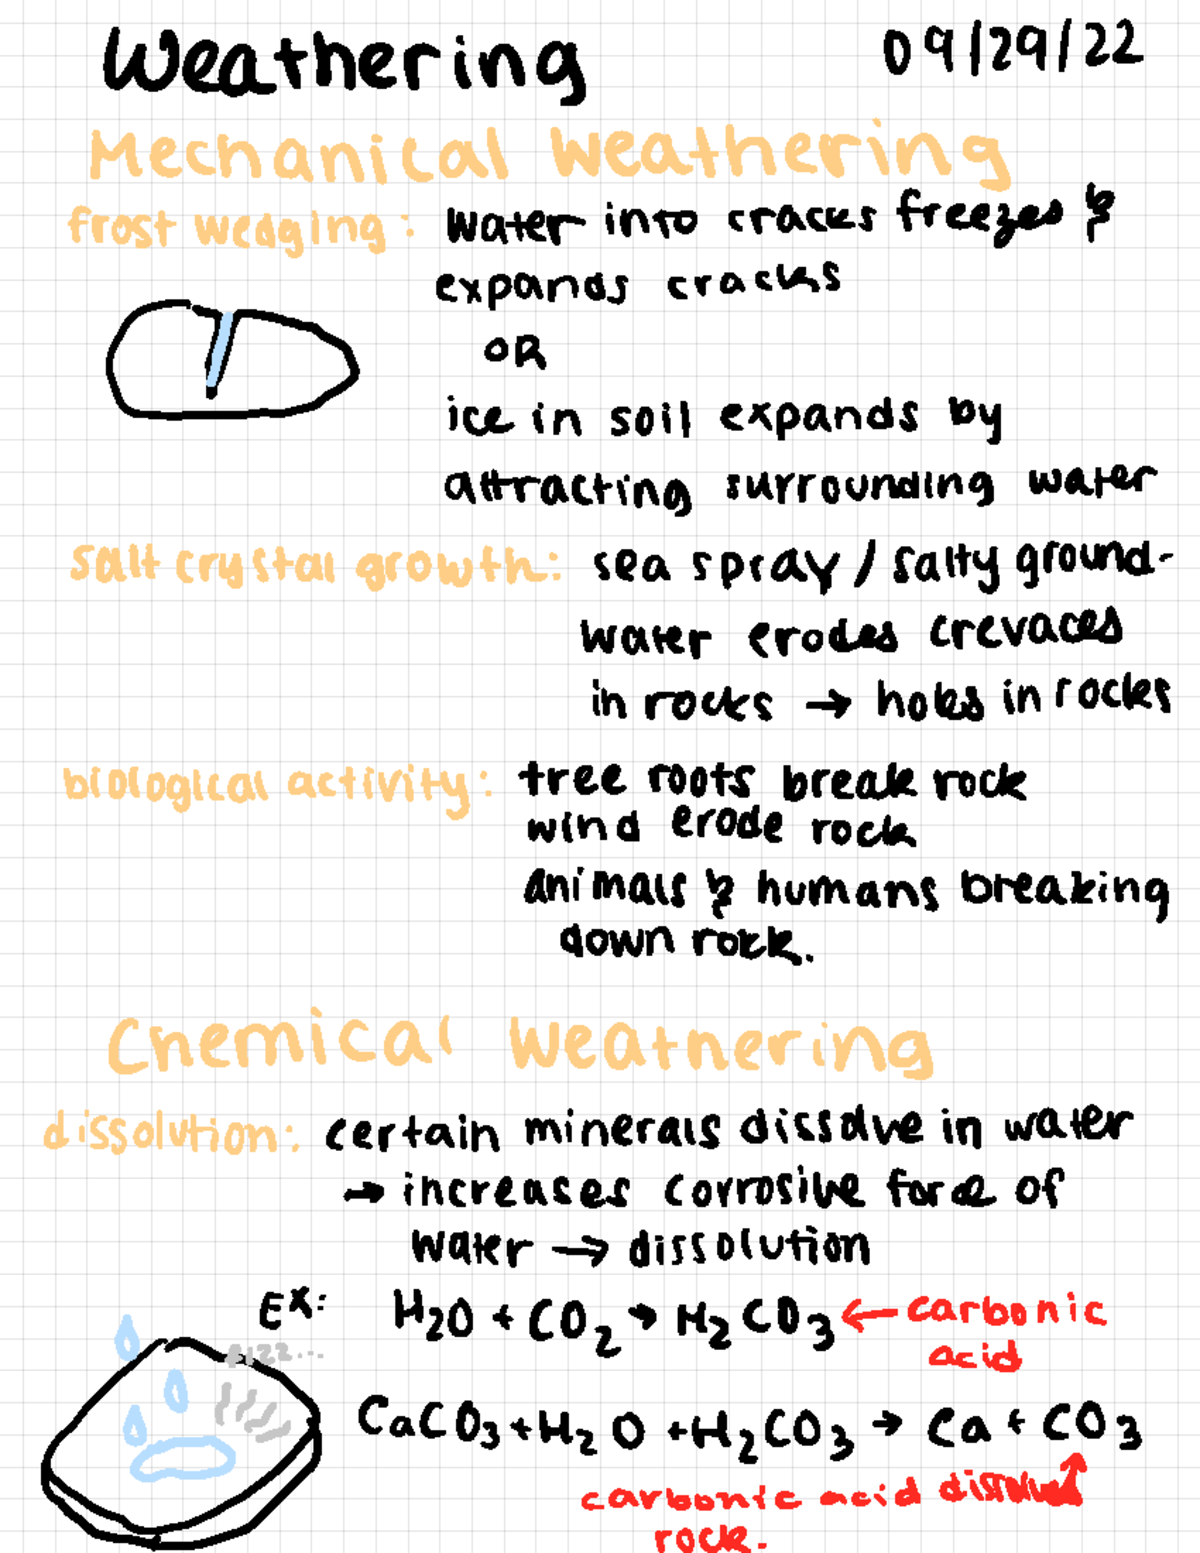 Weathering 09/29/22
Mechanical Weathering
frost wedging: Water into cracks freezes &
expands cracks
OR
ice in soil expands by
attracting surrounding water
salt crystal growth: sea spray / salty ground-
water erodes crevaces
in rocks → holes in rocks
biological activity: tree roots break rock
wind erode rock
animals & humans breaking
down rock.
Chemical Weathering
dissolution: certain minerals dissolve in water
→ increases corrosive force of
water → dissolution
Ex: H2O + CO2 → H2CO3 ← carbonic
acid
CaCO3 + H2O + H2CO3 → Ca + CO3
carbonic acid dissolved
rock.